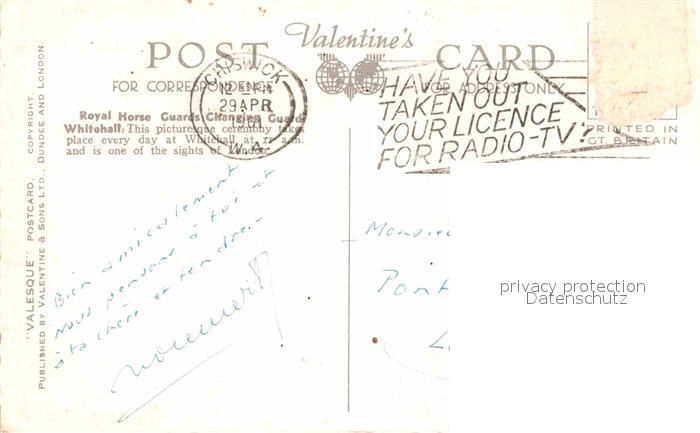 POST Valentine's CARD
FOR CORRESPONDENCE
FOR ADDRESS ONLY
CHISWICK
29 APR
1961
W.4.
HAVE YOU
TAKEN OUT
YOUR LICENCE
FOR RADIO-TV?
Royal Horse Guards Changing Guard
Whitehall. This picturesque ceremony takes
place every day at Whitehall at 11 a.m.
and is one of the sights of London.
PRINTED IN
GT. BRITAIN
"VALESQUE" POSTCARD. COPYRIGHT.
PUBLISHED BY VALENTINE & SONS LTD., DUNDEE AND LONDON.
Bien amicalement
nous pensons à toi et
à ta chère et tendre.-
Monsieu
Pont
privacy protection
Datenschutz